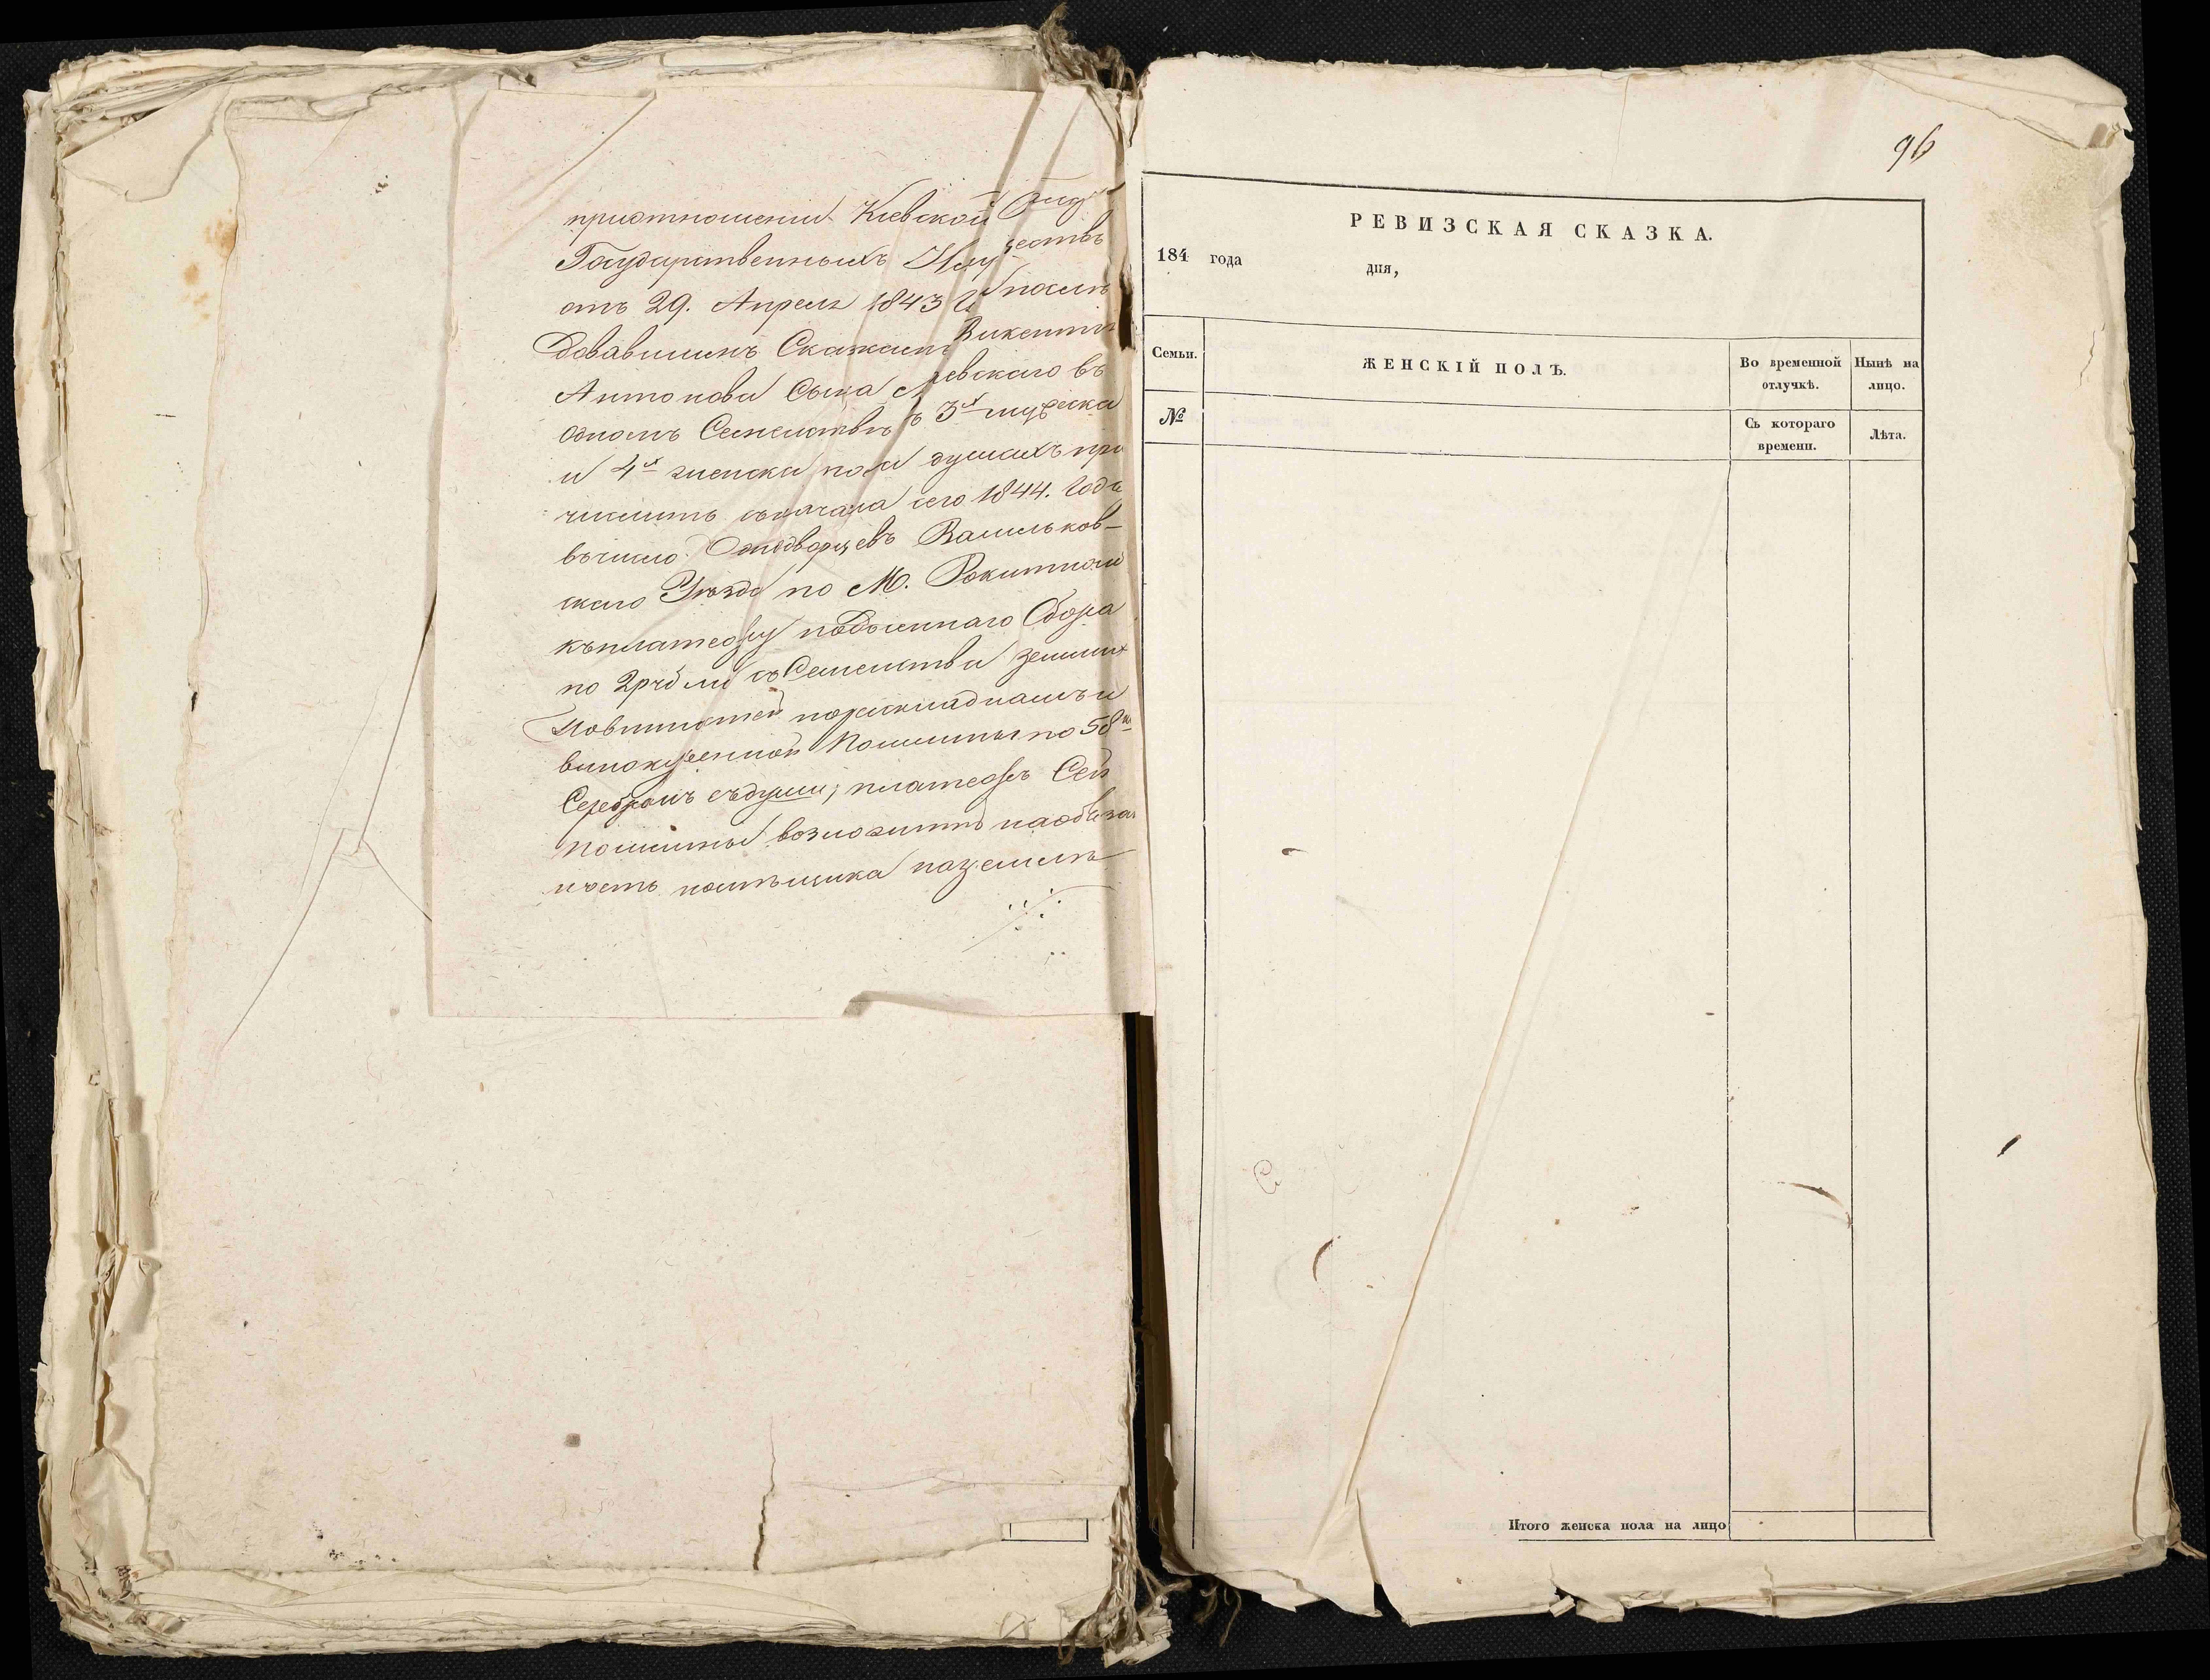 приотношении Кіевской
Государственныхъ Иму ществъ
отъ 29. Апреля 1843
Скаскам Викентія
Антонова Сына левскаго въ
одномъ Семействѣ 3х мужеска
и 4х женска пола душахъ при
числить сначала сего 1844. Года
вчисло Однодворцевъ Васильков-
скаго Уѣзда по М. Рокитной
къплатежу подымнаго Сбора
по 2 рубли съ Семейства земских
Повинностей пораскладкамъ и
винокуренной Пошлины по 58 к
Серебромъ съдуши; платежъ Сей
пошлины возложить наобязан
ность помѣщика
96
РЕВИЗСКАЯ СКАЗКА.
184 года дня,
Семьи. ЖЕНСКІЙ ПОЛЪ. Во временной отлучкѣ. Нынѣ на лицо.
№ Съ котораго времени. Лѣта.
Итого женска пола на лицо